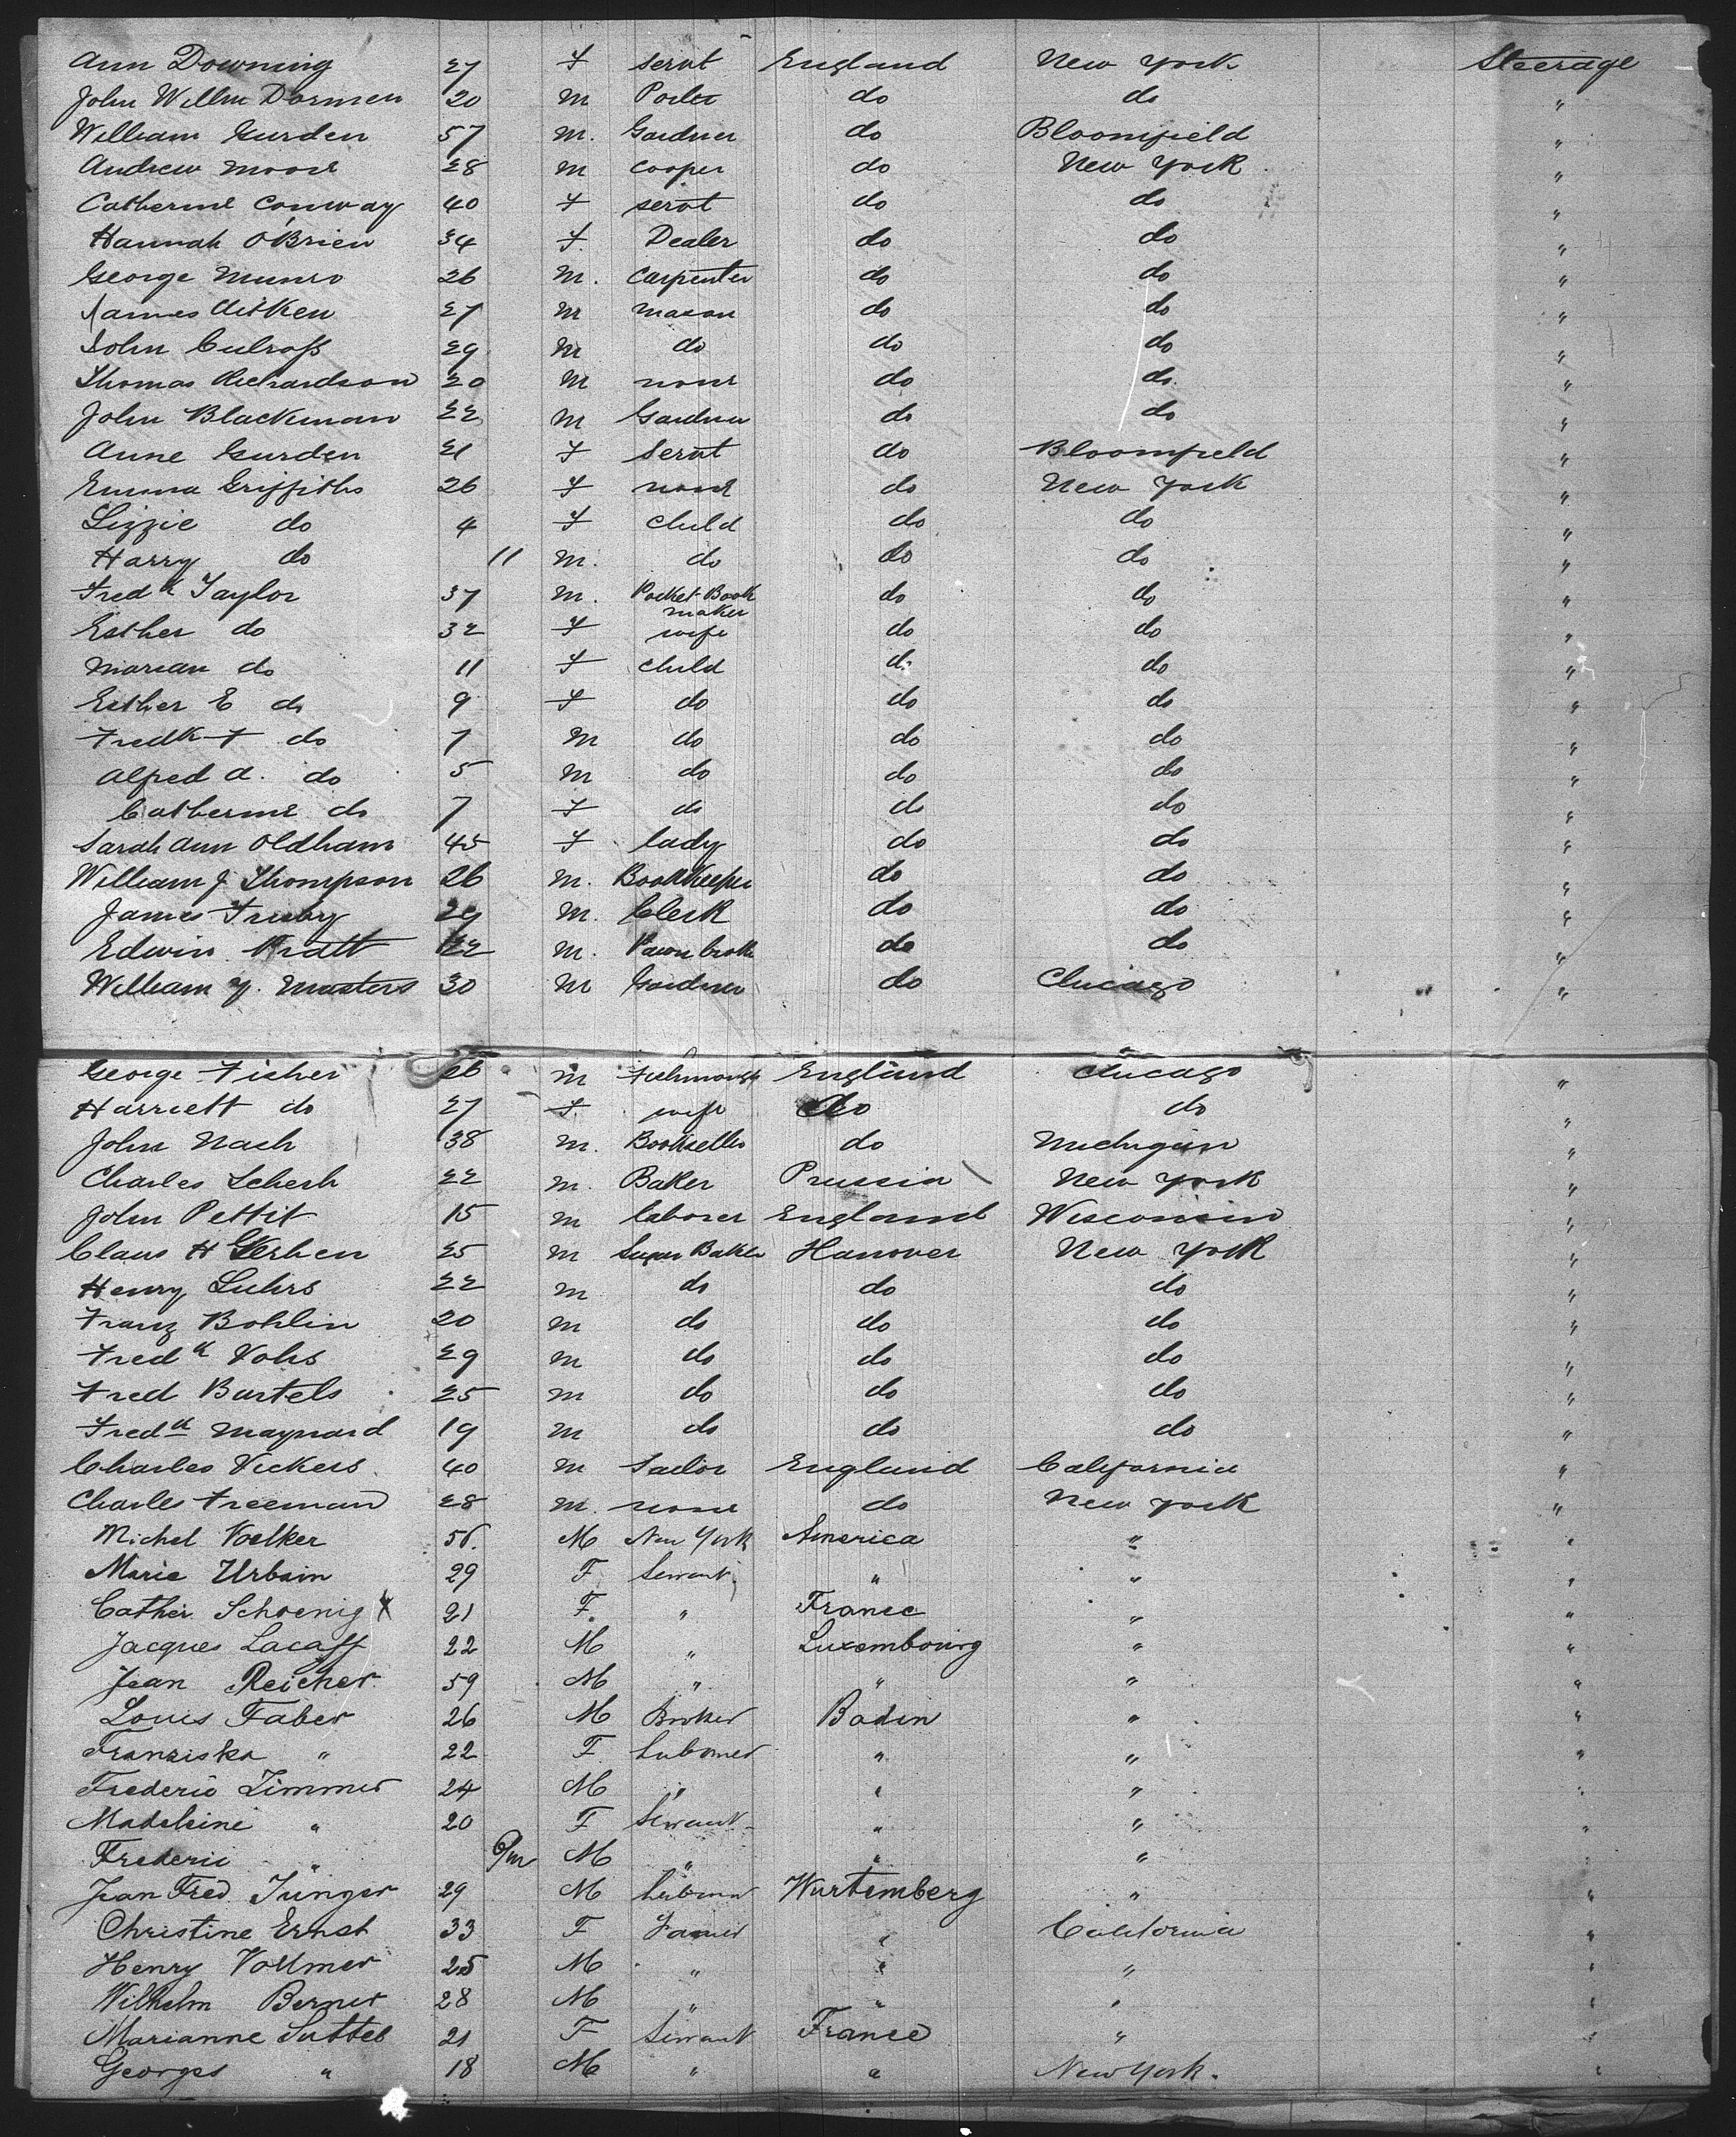 Ann Downing 27 F servt England New York Steerage
John Willm Dormen 20 M Porter do do "
William Gurden 57 M. Gardner do Bloomfield "
Andrew Moore 28 M cooper do New York "
Catherine Conway 40 F servt do do "
Hannah O'Brien 34 F. Dealer do do "
George Munro 26 M. carpenter do do "
James Aitken 27 M mason do do "
John Culross 29 M do do do "
Thomas Richardson 20 M none do do "
John Blackman 22 M Gardner do do "
Anne Gurden 21 F Servt do Bloomfield "
Emma Griffiths 26 F none do New York "
Lizzie do 4 F child do do "
Harry do 11 M. do do do "
Fredk Taylor 37 M. Pocket Book maker do do "
Esther do 32 F wife do do "
Marian do 11 F child do do "
Esther E do 9 F do do do "
Fredk F do 7 M do do do "
Alfred A. do 5 M do do do "
Catherine do 7 F do do do "
Sarah Ann Oldham 45 F lady do do "
William J Thompson 26 M. Bookkeeper do do "
James 29 M. Clerk do do "
Edwin Pratt 22 M. Pawn brok do do "
William Y. Masters 30 M Gardner do Chicago "
George Fisher 26 M Fishmongr England Chicago "
Harriett do 27 F. wife do do "
John Nach 38 M. Bookseller do Michigan "
Charles Scherh 22 M. Baker Prussia New York "
John Pettit 15 M laborer England Wisconsin "
Claus H Gerken 25 M Sugar Baker Hanover New York "
Henry Luhrs 22 M do do do "
Franz Bohlin 20 M do do do "
Fredk Vohs 29 M do do do "
Fred Bartels 25 M do do do "
Fredk Maynard 19 M do do do "
Charles Vickers 40 M Sailor England California "
Charles Freeman 28 M. none do New York "
Michel Voelker 56. M New York America " "
Marie Urbain 29 F Servant. " " "
Cather. Schoenig X 21 F. " France " "
Jacques Lacass 22 M " Luxembourg " "
Jean Reicher 59 M " " " "
Louis Faber 26 M Broker Badin " "
Franziska " 22 F Labourer " " "
Frederic Zimmer 24 M " " " "
Madeleine " 20 F Servant " " "
Frederic " 6/m M " " " "
Jean Fred Junger 29 M Labourer Wurtemberg " "
Christine Ernst 33 F Farmer " California "
Henry Vollmer 25 M " " " "
Wilhelm Berner 28 M " " " "
Marianne Sutteb 21 F Servant France " "
Georges " 18 M " " New York. "